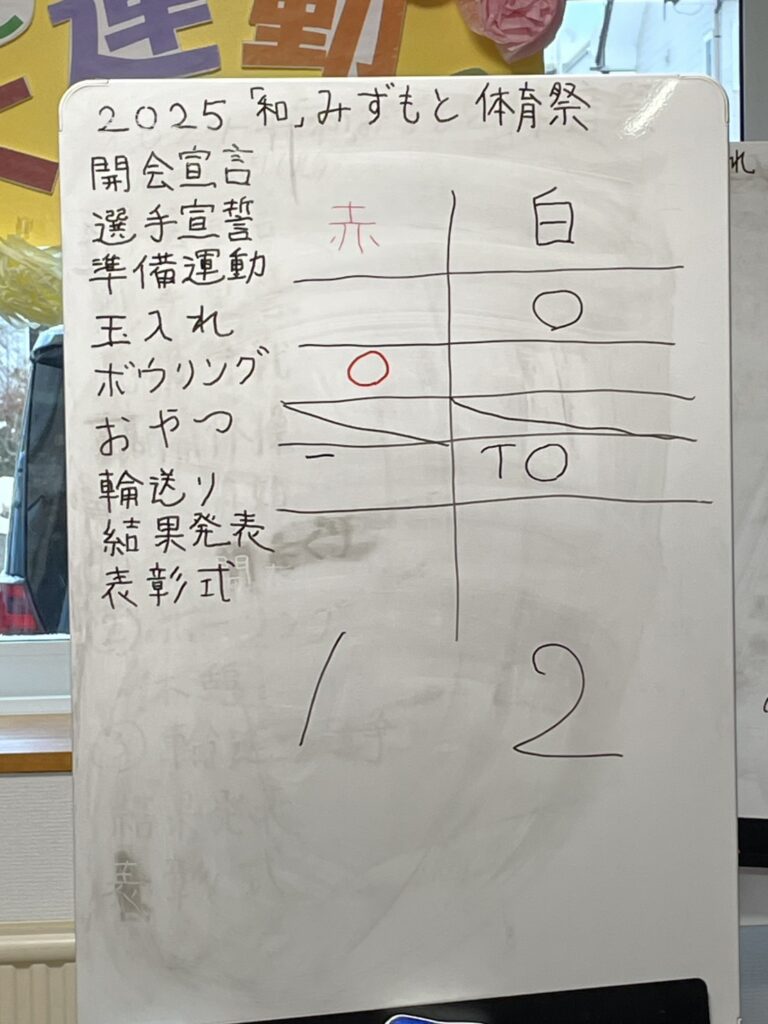 運動
2025「和」みずもと体育祭
開会宣言
選手宣誓 赤 白
準備運動
玉入れ ○
ボウリング ○
おやつ
輪送り 一 T○
結果発表
表彰式
1 2
れ